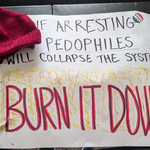 IF ARRESTING
PEDOPHILES
WILL COLLAPSE THE SYST
BURN IT DOW